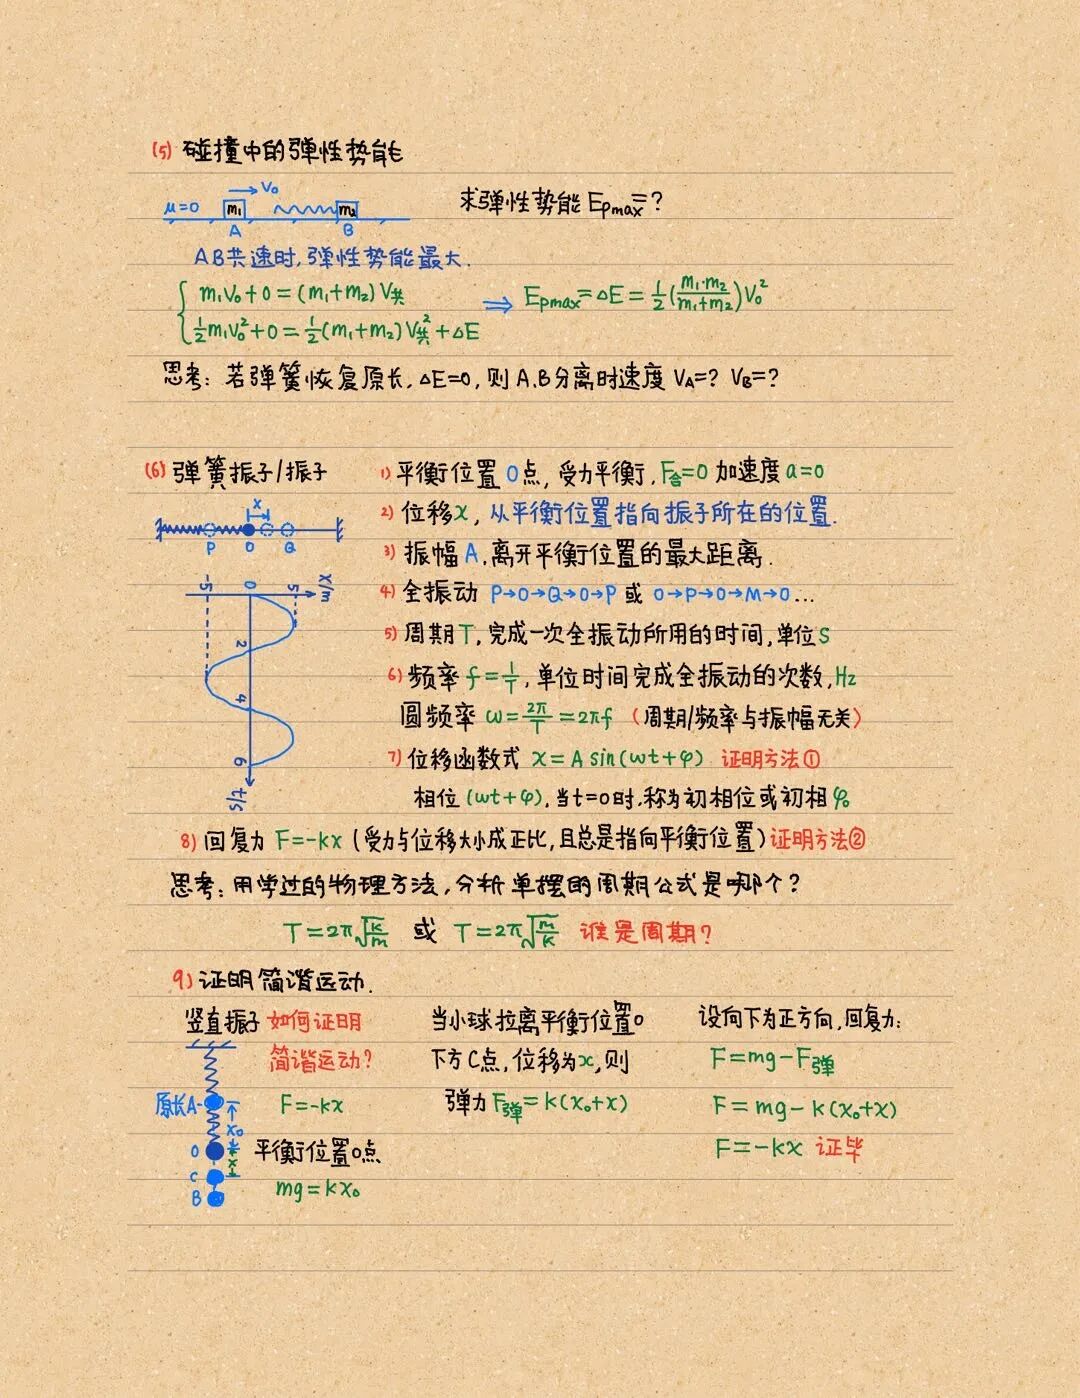 (5) 碰撞中的弹性势能
μ=0 m₁ → V₀ m₂ 求弹性势能 Epmax=?
A B
AB共速时,弹性势能最大.
{ m₁V₀+0=(m₁+m₂)V共
½m₁V₀²+0=½(m₁+m₂)V共²+ΔE ⇒ Epmax=ΔE=½(m₁·m₂/m₁+m₂)V₀²
思考: 若弹簧恢复原长, ΔE=0, 则A.B分离时速度 VA=? VB=?
(6) 弹簧振子/振子
x
P O Q
-5 0 5 x/m
2
4
6
t/s
1) 平衡位置 O点, 受力平衡, F合=0 加速度 a=0
2) 位移x, 从平衡位置指向振子所在的位置.
3) 振幅 A.离开平衡位置的最大距离.
4) 全振动 P→O→Q→O→P 或 O→P→O→M→O...
5) 周期T, 完成一次全振动所用的时间,单位S
6) 频率 f=1/T, 单位时间完成全振动的次数,Hz
圆频率 ω=2π/T=2πf (周期/频率与振幅无关)
7) 位移函数式 x=A sin(ωt+φ) 证明方法①
相位(ωt+φ). 当t=0时.称为初相位或初相φ₀
8) 回复力 F=-kx (受力与位移大小成正比,且总是指向平衡位置) 证明方法②
思考: 用学过的物理方法, 分析单摆的周期公式是哪个?
T=2π√(k/m) 或 T=2π√(m/k) 谁是周期?
9) 证明简谐运动.
竖直振子 如何证明
简谐运动?
原长A
x₀
O
x
C
B
F=-kx
平衡位置O点
mg=kx₀
当小球拉离平衡位置O
下方C点, 位移为x, 则
弹力 F弹=k(x₀+x)
设向下为正方向,回复力:
F=mg-F弹
F=mg-k(x₀+x)
F=-kx 证毕